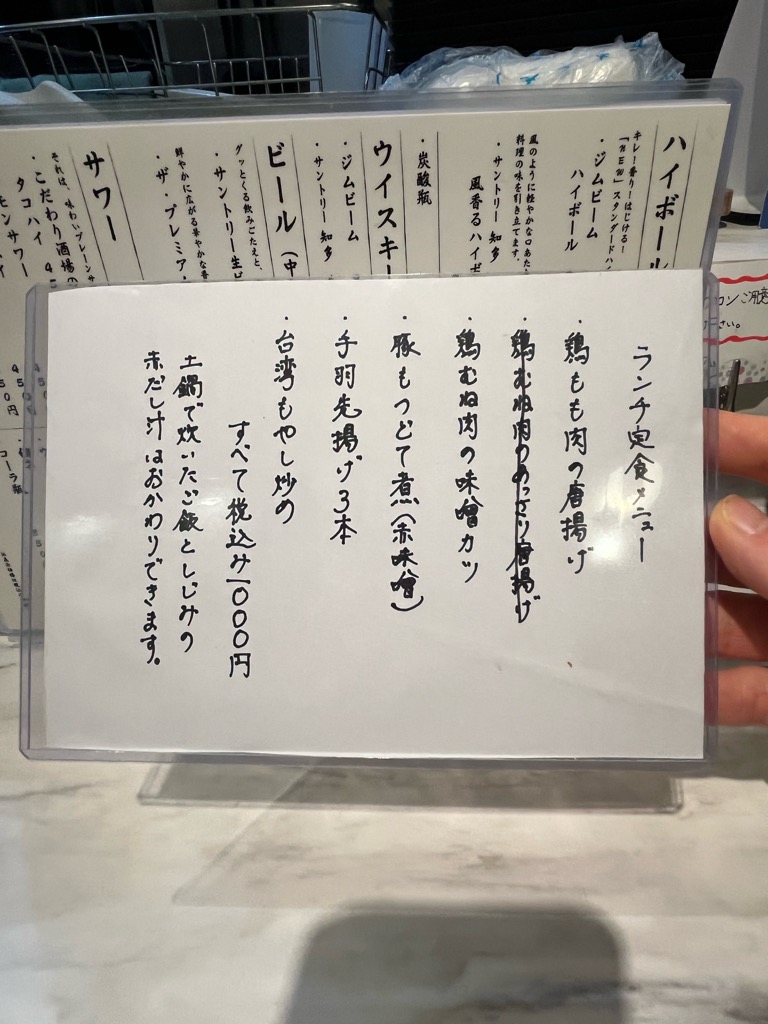 ランチ定食メニュー
・鶏もも肉の唐揚げ
・鶏むね肉のあっさり唐揚げ
・鶏むね肉の味噌カツ
・豚もつどて煮(赤味噌)
・手羽先揚げ3本
・台湾もやし炒め
すべて税込み1000円
土鍋で炊いたご飯としじみの
赤だし汁はおかわりできます。
ハイボール
キレー香りーはじける!
「NEW」スタンダードハイ
・ジムビーム
ハイボール
風のように軽やかな口あた
料理の味を引き立てます。
・サントリー 知多
風香るハイボ
・炭酸瓶
ウイスキー
・ジムビーム
・サントリー 知多
ビール(中
グッとくる飲みごたえと、
・サントリー生ビ
鮮やかに広がる華やかな香
・ザ・プレミア
サワー
それは、味わいプレーンサ
・こだわり酒場の
タコハイ
モンサワー
コーラ瓶
コンご用意
さい。